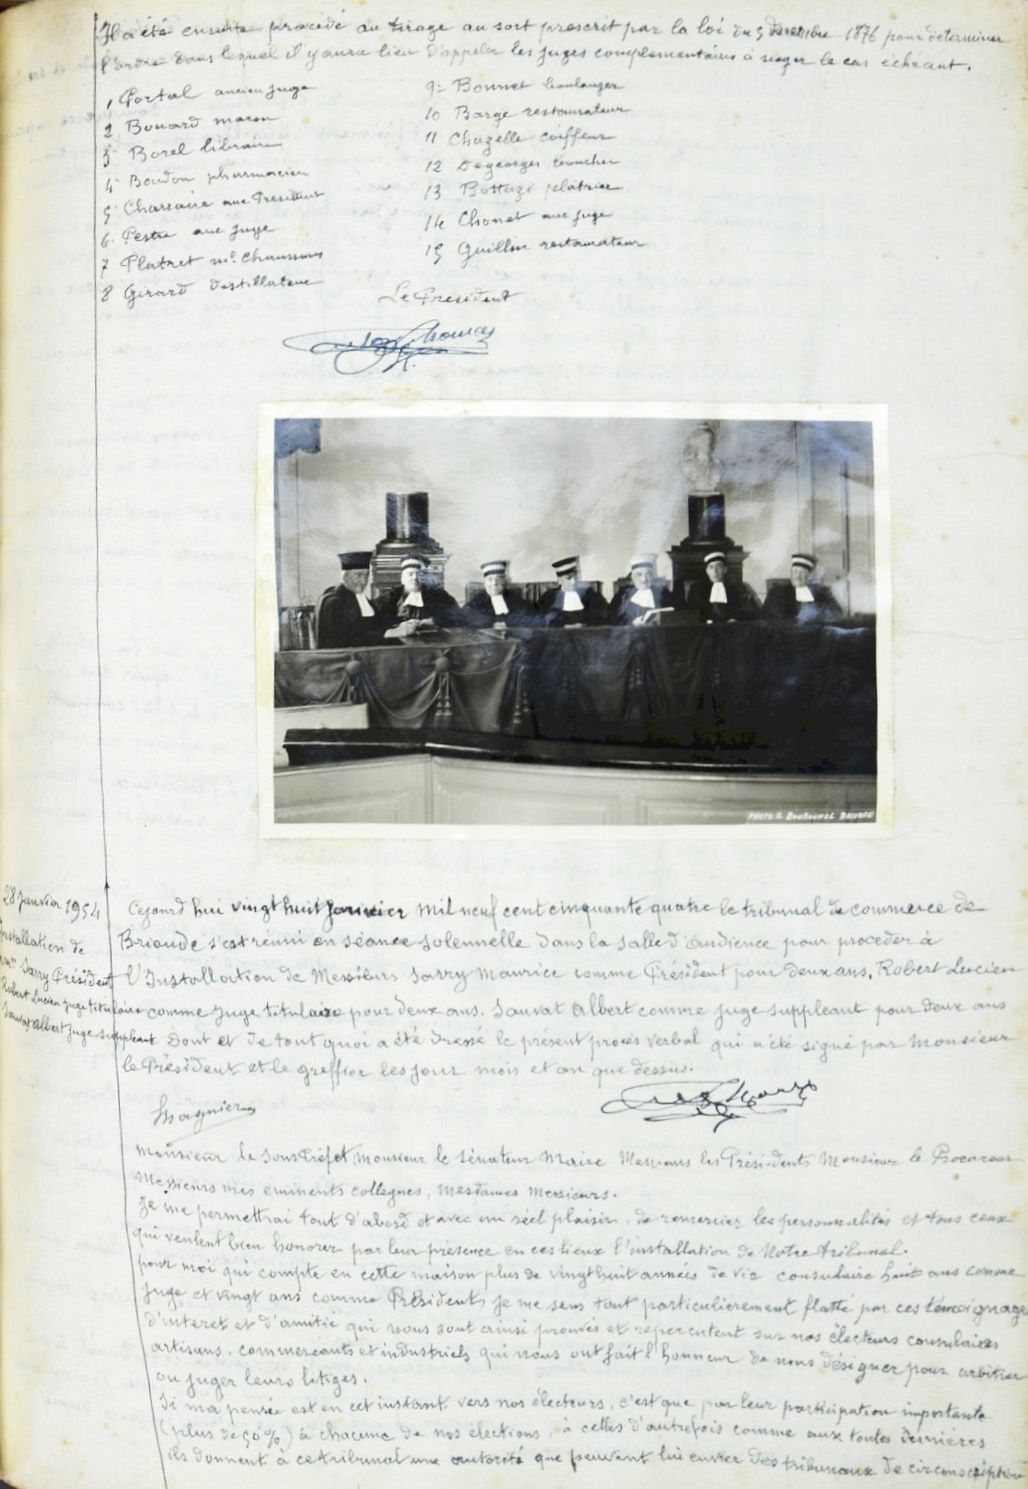 Il a été ensuite procédé au tirage au sort prescrit par la loi du 5 Decembre 1876 pour déterminer
l'ordre dans lequel il y aura lieu d'appeler les juges complementaires à sieger le cas échéant.
1 Portal ancien juge
2 Bouard macon
3 Borel libraire
4 Boudon pharmacien
5 Charraire anc President
6 Pestre anc juge
7 Platret md Chaussures
8 Girard Distillateur
9 Bonnet boulanger
10 Barge restaurateur
11 Chazelle coiffeur
12 Degeorges boucher
13 Bottazi platrier
14 Chonet anc juge
15 Guillin restaurateur
Le President
PHOTO G. BRIOUDE
28 Janvier 1954
Installation de
Mrs Sarry Président
Robert Lucien juge titulaire
Sauvat Albert juge suppleant
Cejourd'hui vingt huit Janvier mil neuf cent cinquante quatre le tribunal de commerce de
Brioude s'est réuni en séance solennelle dans la salle d'audience pour proceder à
l'Installation de Messieurs Sarry Maurice comme Président pour deux ans, Robert Lucien
comme juge titulaire pour deux ans. Sauvat Albert comme juge suppleant pour deux ans
Dont et de tout quoi a été dressé le présent procés verbal qui a été signé par Monsieur
le Président et le greffier les jour mois et an que dessus.
Magnier
Monsieur le Sous Préfet, Monsieur le Sénateur Maire Messieurs les Présidents Monsieur le Procureur
Messieurs mes eminents collegues, Mesdames Messieurs.
Je me permettrai tout d'abord et avec un réel plaisir, de remercier les personnalités et tous ceux
qui veulent bien honorer par leur présence en ces lieux l'installation de Notre tribunal.
pour moi qui compte en cette maison plus de vingt huit années de vie consulaire huit ans comme
Juge et vingt ans comme Président, je me sens tout particulierement flatté par ces témoignages
d'interet et d'amitié qui nous sont ainsi prouvés et repercutent sur nos électeurs consulaires
artisans, commerçants et industriels qui nous ont fait l'honneur de nous désigner pour arbitrer
ou juger leurs litiges.
Si ma pensée est en cet instant vers nos électeurs, c'est que par leur participation importante
(plus de 50 %) à chacune de nos élections, à celles d'autrefois comme aux toutes dernières
ils donnent à ce tribunal une autorité que peuvent lui envier des tribunaux de circonscription